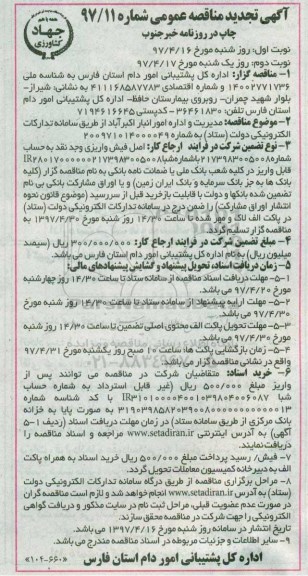 آگهی تجدید مناقصه عمومی شماره ۹۷/۱۱
چاپ در روزنامه خبر جنوب
جهاد کشاورزی
نوبت اول: روز شنبه مورخ ۹۷/۴/۱۶
نوبت دوم: روز یک شنبه مورخ ۹۷/۴/۱۷
۱- مناقصه گزار: اداره کل پشتیبانی امور دام استان فارس به شناسه ملی
۱۴۰۰۲۷۷۱۷۳۶ و شماره اقتصادی ۴۱۱۱۶۸۵۸۷۷۸۳ به نشانی: شیراز-
بلوار شهید چمران- روبروی بیمارستان حافظ- اداره کل پشتیبانی امور دام
استان فارس تلفن: ۳۶۴۶۱۸۳۰ - کدپستی ۷۱۹۴۶۱۶۶۴۵
۲- موضوع مناقصه: مدیریت و اداره امور انبار اکبرآباد از طریق سامانه تدارکات
الکترونیکی دولت (ستاد) به شماره ۲۰۰۹۷۱۰۱۴۰۰۰۰۰۴۹
۳- نوع تضمین شرکت در فرایند ارجاع کار: اصل فیش واریزی وجه نقد به حساب
شماره ۲۱۷۳۹۸۳۰۰۵۰۰۸ باشماره شبا
قابل واریز در کلیه شعب بانک ملی یا ضمانت نامه بانکی به نام مناقصه گزار (کلیه
بانک ها به جز بانک سرمایه و بانک ایران زمین) و یا اوراق مشارکت بانکی بی نام
تضمین شده بانکها و دولت با قابلیت بازخرید قبل از سررسید (موضوع قانون نحوه
انتشار اوراق مشارکت) را ضمن درج در سامانه تدارکات الکترونیکی دولت (ستاد)
در پاکت الف لاک و مهر شده تا ساعت ۱۴/۳۰ روز شنبه مورخ ۱۳۹۷/۴/۳۰ به
مناقصه گزار تسلیم گردد.
۴- مبلغ تضمین شرکت در فرایند ارجاع کار: ۳۰۰/۰۰۰/۰۰۰ ریال (سیصد
میلیون ریال) به نام اداره کل پشتیبانی امور دام استان فارس می باشد.
۵- زمان دریافت اسناد، تحویل پیشنهاد و گشایش پیشنهادهای مالی:
۵-۱- مهلت دریافت اسناد مناقصه از سامانه ستاد تا ساعت ۱۴/۳۰ روز چهارشنبه
مورخ ۹۷/۴/۲۰ می باشد.
۵-۲- مهلت ارایه پیشنهاد از سامانه ستاد تا ساعت ۱۴/۳۰ روز شنبه مورخ
۹۷/۴/۳۰ می باشد.
۵-۳- مهلت تحویل پاکت الف محتوی اصلی تضمین تا ساعت ۱۴/۳۰ روز شنبه
مورخ ۹۷/۴/۳۰ می باشد.
۵-۴- زمان بازگشایی پاکت ها، ساعت ۱۰ صبح روز یکشنبه مورخ ۹۷/۴/۳۱
واقع در نشانی مناقصه گزار می باشد.
۶- خرید اسناد: متقاضیان شرکت در مناقصه می توانند پس از
واریز مبلغ ۵۰۰/۰۰۰ ریال (غیر قابل استرداد به شماره حساب
شبا با کد شناسه شماره
به صورت پایا به خزانه
بانک مرکزی از طریق سامانه ستاد) در زمان مهلت دریافت اسناد (ردیف ۵-۱
آگهی) به آدرس اینترنتی www.setadiran.ir مراجعه و اسناد مناقصه را
دریافت نمایند.
۷- فیش/ رسید پرداخت مبلغ ۵۰۰/۰۰۰ ریال خرید اسناد به همراه پاکت
الف به دبیرخانه کمیسیون معاملات تحویل گردد.
۸- مراحل برگزاری مناقصه از طریق درگاه سامانه تدارکات الکترونیکی دولت
(ستاد) به آدرس www.setadiran.ir انجام خواهد شد و لازم است مناقصه گران
در صورت عدم عضویت قبلی، مراحل ثبت نام در سایت مذکور و دریافت گواهی
الکترونیکی را جهت شرکت در مناقصه محقق سازند.
تاریخ انتشار در سامانه روز شنبه مورخ ۱۳۹۷/۴/۱۶ می باشد.
۹- سایر اطلاعات و جزئیات مربوطه در اسناد مناقصه مندرج می باشد.
اداره کل پشتیبانی امور دام استان فارس